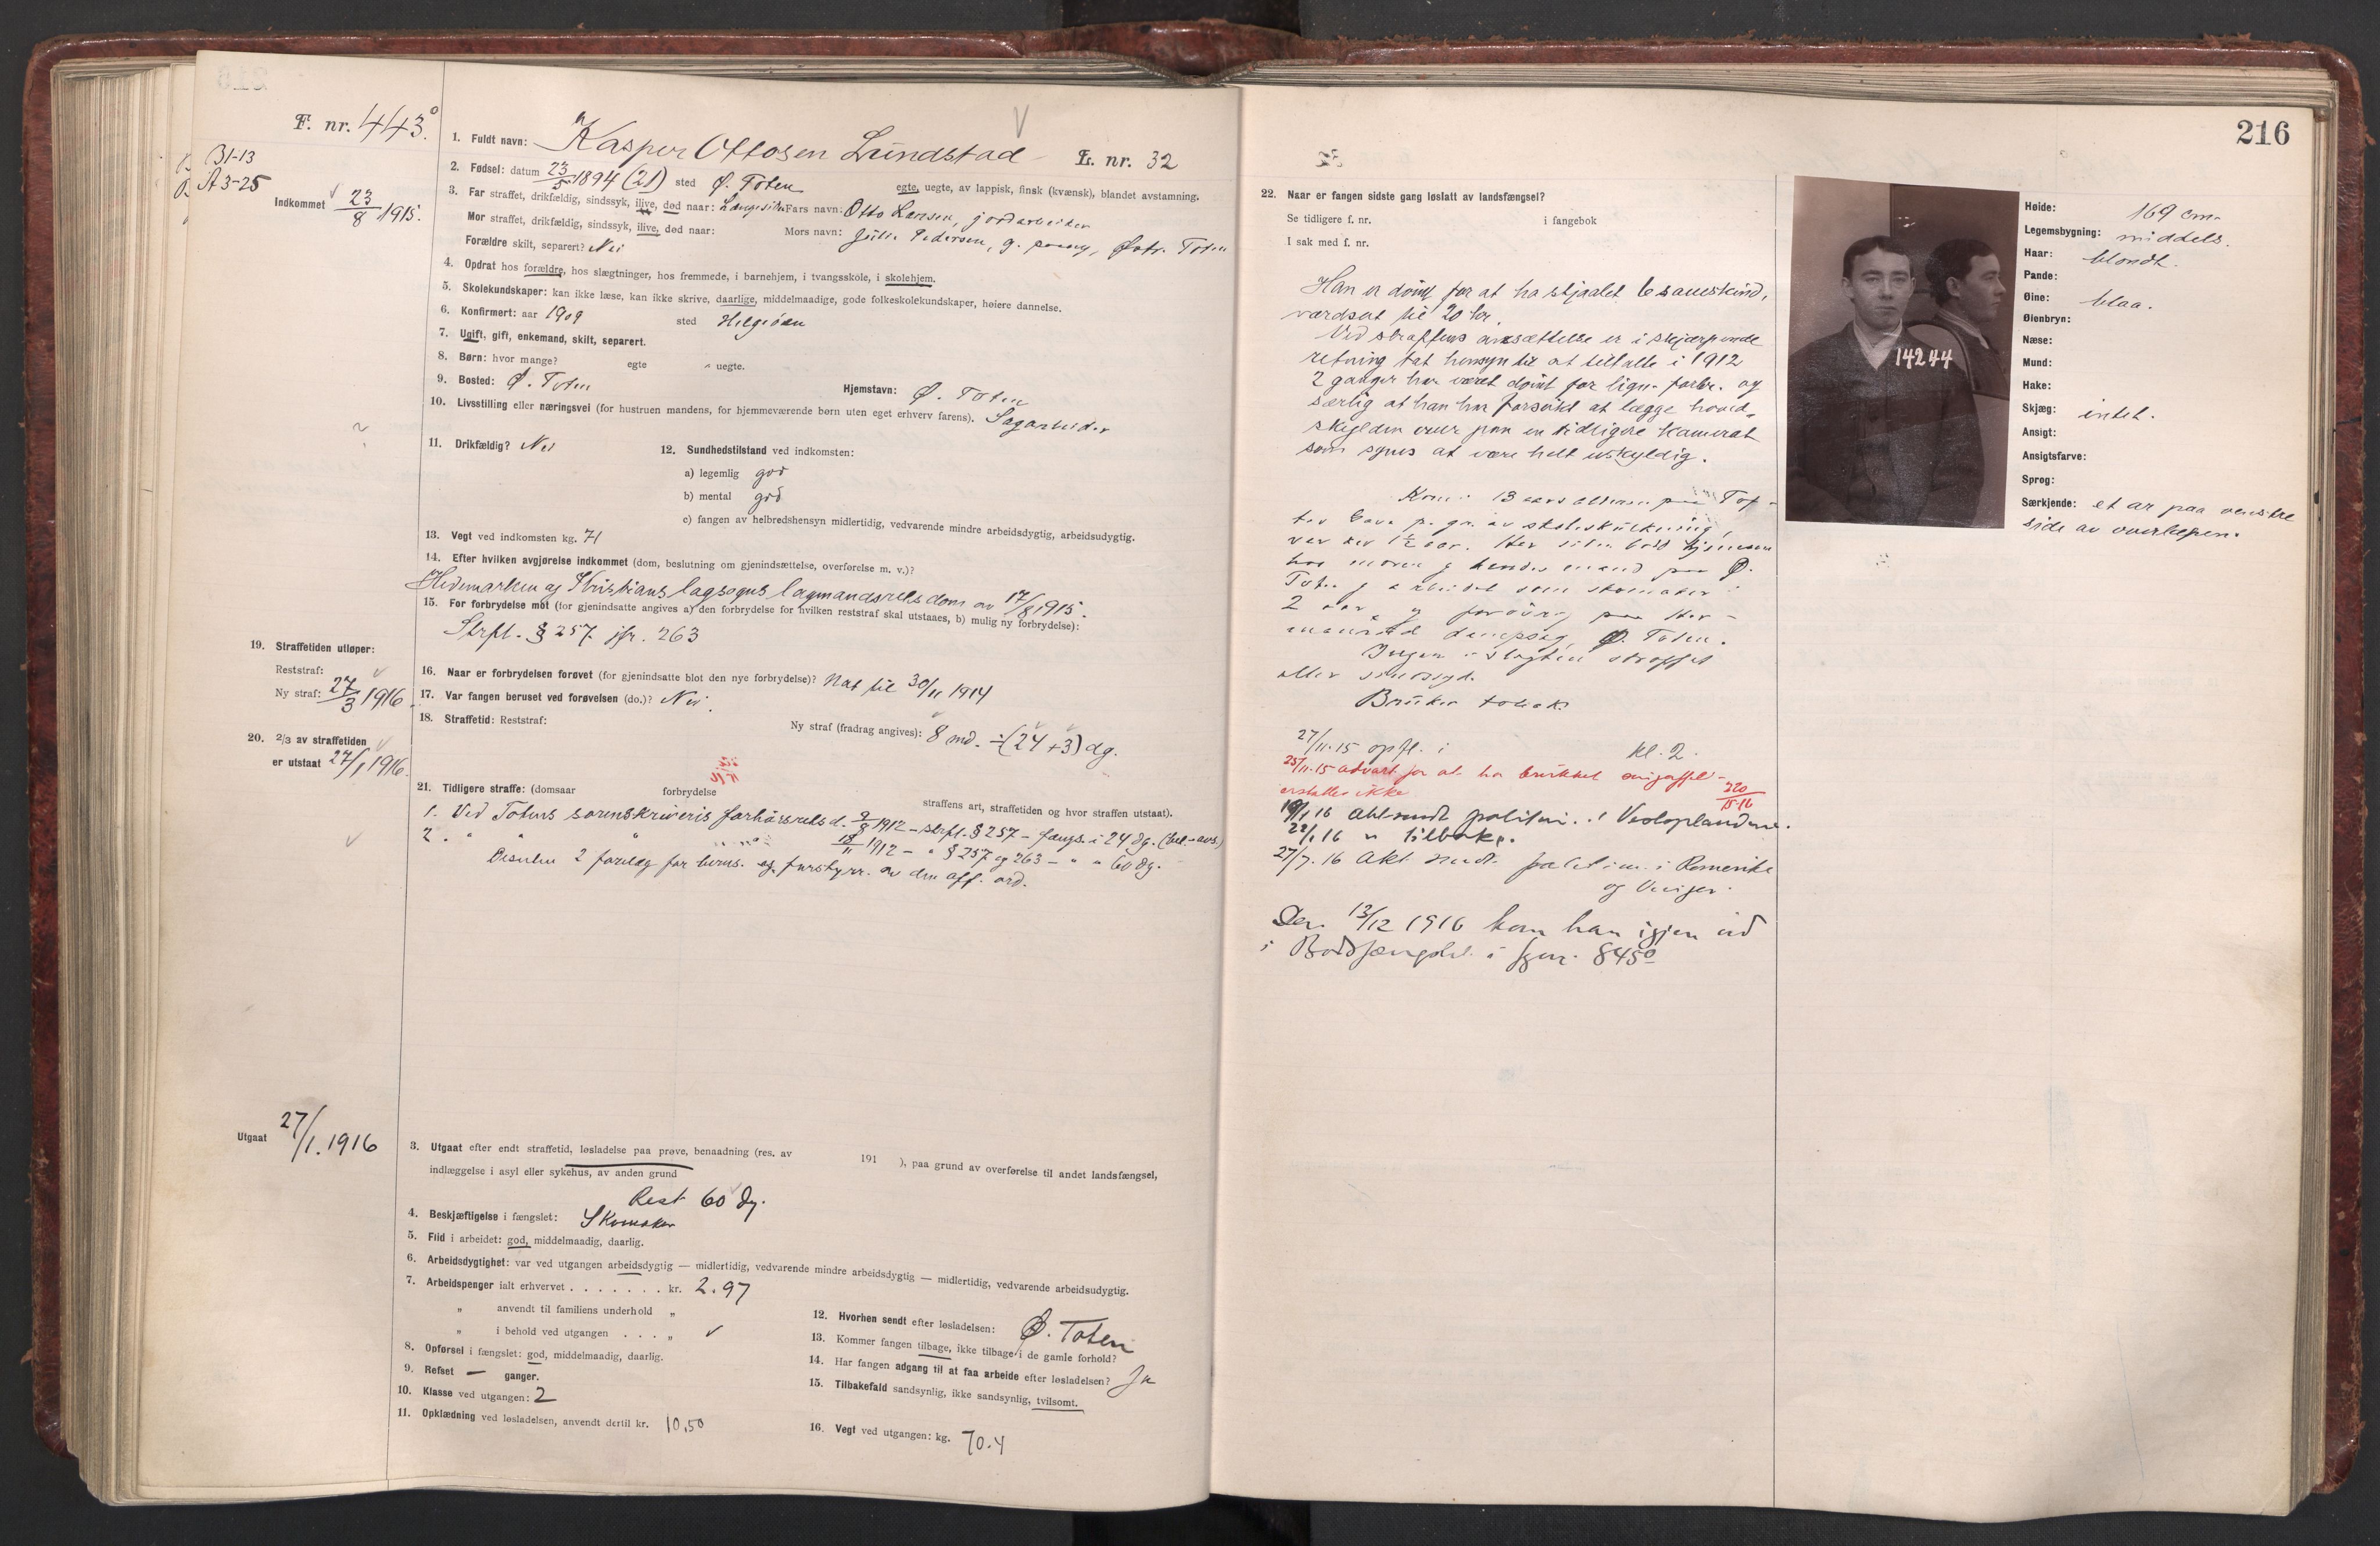 F. nr. 443.
B1-13
A 3-25
Indkommet 23/8 1915.
1. Fuldt navn: Kasper Ottosen Lundstad
L. nr. 32
2. Fødsel: datum 23/5 1894 (21) sted Ø. Toten egte, uegte, av lappisk, finsk (kvænsk), blandet avstamning.
3. Far straffet, drikfældig, sindssyk, ilive, død naar: Længe siden Fars navn: Otto Larsen, jordarbeider
Mor straffet, drikfældig, sindssyk, ilive, død naar: Mors navn: Julie Pedersen, g. Østr. Toten
Forældre skilt, separert? Nei
4. Opdrat hos forældre, hos slægtninger, hos fremmede, i barnehjem, i tvangsskole, i skolehjem.
5. Skolekundskaper: kan ikke læse, kan ikke skrive, daarlige, middelmaadige, gode folkeskolekundskaper, høiere dannelse.
6. Konfirmert: aar 1909 sted Helgiøen
7. Ugift, gift, enkemand, skilt, separert.
8. Børn: hvor mange? egte " uegte.
9. Bosted: Ø. Toten Hjemstavn: Ø. Toten
10. Livsstilling eller næringsvei (for hustruen mandens, for hjemmeværende børn uten eget erhverv farens). Sagarbeider
11. Drikfældig? Nei
12. Sundhedstilstand ved indkomsten:
a) legemlig god
b) mental god
c) fangen av helbredshensyn midlertidig, vedvarende mindre arbeidsdygtig, arbeidsudygtig.
13. Vegt ved indkomsten kg. 71
14. Efter hvilken avgjørelse indkommet (dom, beslutning om gjenindsættelse, overførelse m. v.)?
Hedemarken og Kristians lagsogns lagmandsrets dom av 17/8 1915.
15. For forbrydelse mot (for gjenindsatte angives a) den forbrydelse for hvilken reststraf skal utstaaes, b) mulig ny forbrydelse):
Strfl. § 257 jfr. 263
16. Naar er forbrydelsen forøvet (for gjenindsatte blot den nye forbrydelse)? Nat til 30/11 1914
17. Var fangen beruset ved forøvelsen (do.)? Nei.
18. Straffetid: Reststraf: Ny straf (fradrag angives): 8 md. ÷ (24 + 3) dg.
19. Straffetiden utløper:
Reststraf:
Ny straf: 27/3 1916.
20. 2/3 av straffetiden
er utstaat 27/1 1916.
21. Tidligere straffe: (domsaar forbrydelse straffens art, straffetiden og hvor straffen utstaat).
1. Ved Totens sorenskriveris forhørsrets d. 9/8 1912 – strfl. § 257 – fængs. i 24 dg. (bet. – avs.)
2. " " " 18/11 1912 – " § 257 og 263 – " " 60 dg.
Desuten 2 forelæg for berus. og forstyrr. av den off. ord.
Utgaat 27/1. 1916
3. Utgaat efter endt straffetid, løsladelse paa prøve, benaadning (res. av 191 ), paa grund av overførelse til andet landsfængsel,
indlæggelse i asyl eller sykehus, av anden grund
Rest 60 dg.
4. Beskjæftigelse i fængslet: Skomaker
5. Flid i arbeidet: god, middelmaadig, daarlig.
6. Arbeidsdygtighet: var ved utgangen arbeidsdygtig — midlertidig, vedvarende mindre arbeidsdygtig — midlertidig, vedvarende arbeidsudygtig.
7. Arbeidspenger ialt erhvervet . . . . . . . kr. 2.97
" anvendt til familiens underhold "
" i behold ved utgangen . . . "
8. Opførsel i fængslet: god, middelmaadig, daarlig.
9. Refset — ganger.
10. Klasse ved utgangen: 2
11. Opklædning ved løsladelsen, anvendt dertil kr. 10,50
12. Hvorhen sendt efter løsladelsen: Ø. Toten
13. Kommer fangen tilbage, ikke tilbage i de gamle forhold?
14. Har fangen adgang til at faa arbeide efter løsladelsen? Ja
15. Tilbakefald sandsynlig, ikke sandsynlig, tvilsomt.
16. Vegt ved utgangen: kg. 70.4
216
22. Naar er fangen sidste gang løslatt av landsfængsel?
Se tidligere f. nr. i fangebok
I sak med f. nr.
Han er dømt for at ha stjaalet 6 saueskind,
værdsat til 20 kr.
Ved straffens ansættelse er i skjærpende
retning tat hensyn til at tiltalte i 1912
2 ganger har været dømt for lign. forbr. og
særlig at han har forsøkt at lægge hoved-
skylden over paa en tidligere kamerat
som synes at være helt uskyldig.
Kom i 13 aars alderen paa Tof-
tes Gave p. gr. av skoleskulkning,
var der 1½ aar. Har siden hjemme
hos moren og hendes mand paa Ø.
Toten og arbeidet som skomaker i
2 aar og forøvrig paa
dampsag, Ø. Toten.
Ingen i slegten straffet
eller sindssyk.
Bruker tobak.
27/11-15 opfl. i kl. 2.
25/11-15 advart for at ha brukket
erstattes ikke 220/15-16
19/1 16 Akt sendt politim. i Vestoplandene.
22/1 16 " tilbake.
27/7. 16 Akt sendt politim. i Romerike
og
Den 13/12 1916 kom han igjen ind
i Bodsfængslet i fgnr. 845
14244
Høide: 169 cm.
Legemsbygning: middels.
Haar: blondt.
Pande:
Øine: blaa.
Øienbryn:
Næse:
Mund:
Hake:
Skjæg: intet.
Ansigt:
Ansigtsfarve:
Sprog:
Særkjende: et ar paa venstre
side av overlæpen.